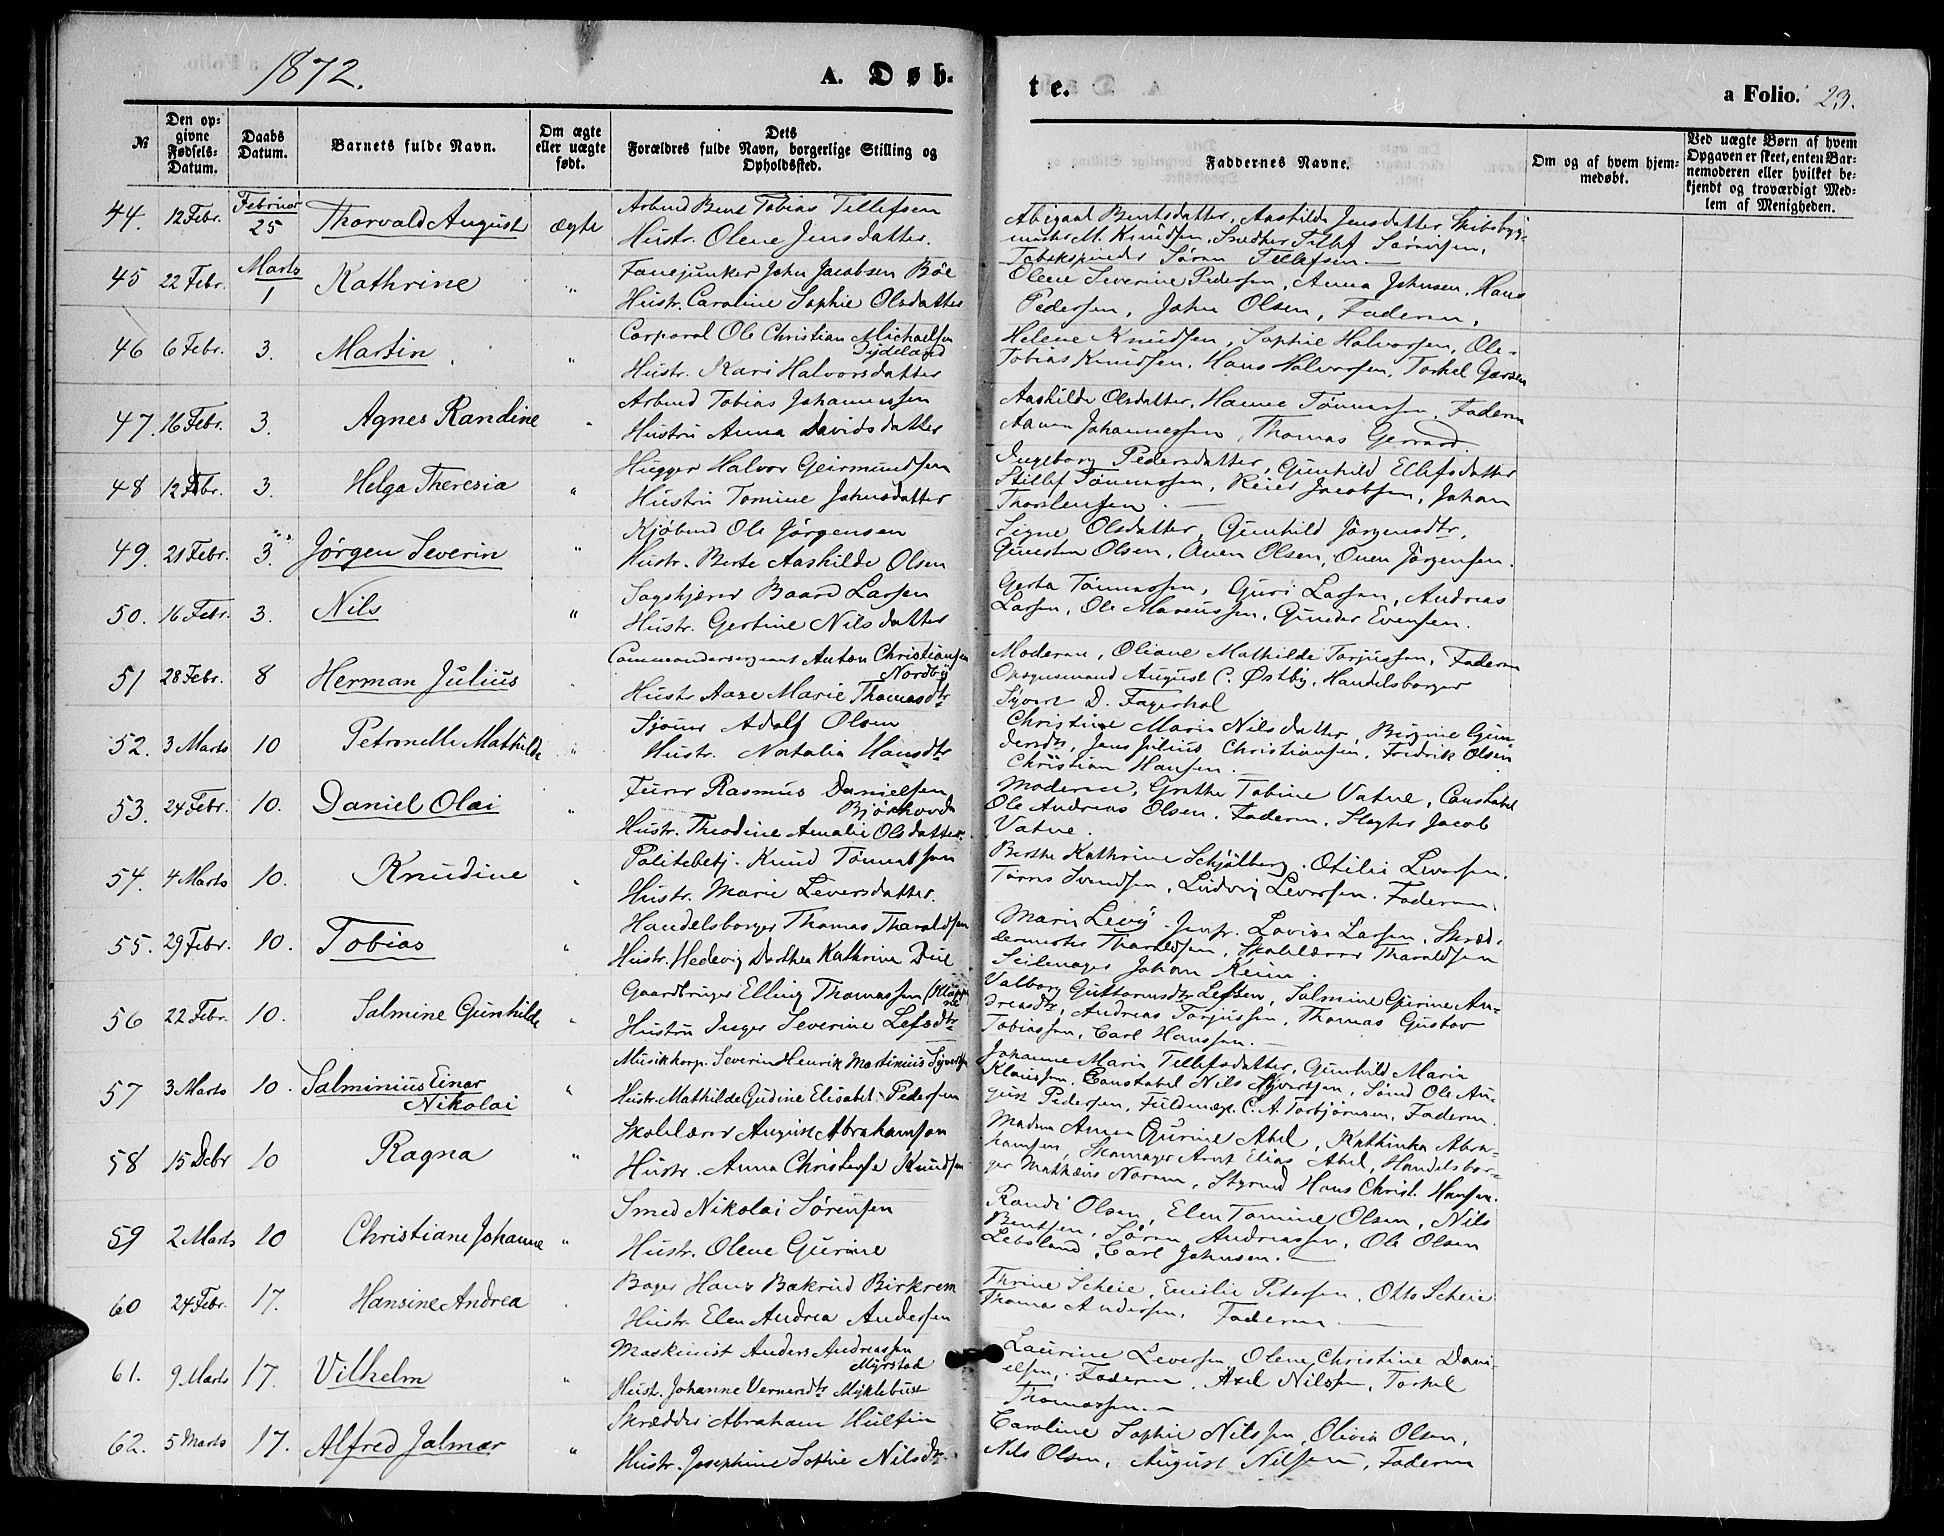 1872.
A. Døb-
te.
a Folio. 23.
№
Den op-
givne
Fødsels-
Datum.
Daabs
Datum.
Barnets fulde Navn.
Om ægte
eller uægte
født.
Dets
Forældres fulde Navn, borgerlige Stilling og
Opholdssted.
Faddernes Navne.
Om og af hvem hjem-
medøbt.
Ved uægte Børn af hvem
Opgaven er skeet, enten Bar-
nemoderen eller hvilket be-
kjendt og troværdigt Med-
lem af Menigheden.
44. 12 Febr. Februar 25 Thorvald August ægte
Arbmd Bent Tobias Tellefsen
Hustr. Olene Jensdatter.
Abigael Bentsdatter, Aashilde Jensdatter, Skibsbyg-
mester M. Knudsen, Snedker Tellef Sørensen,
Tobakspinder Søren Tellefsen.
45 22 Febr. Marts 1 Kathrine "
Fanejunker John Jacobsen Böe
Hustr. Caroline Sophie Olsdatter
Olene Severine Pedersen, Anna Johnsen, Hans
Pedersen, John Olsen, Faderen,
46 6 Febr. 3. Martin "
Corporal Ole Christian Michaelsen
Tydeland
Hustr. Kari Halvorsdatter
Helene Knudsen, Sophie Halvorsen, Ole
Tobias Knudsen, Hans Halvorsen, Torkel
47. 16 Febr. 3. Agnes Randine "
Arbmd Tobias Johannessen
Hustru Anna Davidsdatter
Aashilde Olsdatter, Hanne Tønnessen, Faderen
Johannessen, Thomas Gerrard
48 12 Febr. 3. Helga Theresia "
Hugger Halvor Geirmundsen
Hustru Tomine Johnsdatter
Ingeborg Pedersdatter, Gunhild Ellefsdatter
Stillef Tønnessen, Reier Jacobsen, Johan
Thorstensen.
49. 21 Febr. 3. Jørgen Severin "
Kjøbmd Ole Jørgensen
Hustr. Berte Aashilde Olsen
Signe Olsdatter, Gunhild Jørgensdtr,
Olsen, Aven Olsen, Ouen Jørgensen.
50. 16 Febr. 3. Nils "
Sagskjærer Baard Larsen
Hustr. Gertine Nilsdatter
Gerta Tønnessen, Guri Larsen, Andreas
Larsen, Ole Mareussen, Gunder Evensen.
51 28 Febr. 8 Herman Julius "
Commandersergeant Anton Christiansen
Nordbÿ
Hustr Aase Marie Thomasdtr
Moderen, Oliane Mathilde Torjussen, Faderen
Opsynsmand August C. Østby, Handelsborger
Syvert D. Fagerhol
52. 3 Marts 10 Petronelle Mathilde "
Sjømd Adolf Olsen
Hustr. Natalia Hansdtr
Christine Marie Nilsdatter, Birgine Gun
dersdtr, Jens Julius Christiansen, Fredrik Olsen
Christian Hansen.
53. 24 Febr. 10. Daniel Olai "
Furer Rasmus Danielsen
Hustr. Theodine Amalie Olsdatter.
Moderen, Grethe Tobine Vatne, Constabel
Ole Andreas Olsen, Faderen, Slagter Jacob
Vatne.
54. 4 Marts 10. Knudine "
Politibetj. Knud Tønnessen
Hustr. Marie Leversdatter.
Berthe Kathrine Schjølberg, Otilie Leversen.
Tønnes Svendsen, Ludvig Leversen. Faderen.
55. 29 Febr. 10. Tobias "
Handelsborger Thomas Tharaldsen
Hustr. Hedevig Dorthea Kathrine Due
Marie Levÿ. Jomfr. Lovise Larsen, Skræd-
dermester Tharaldsen, Skolelærer Tharaldsen
Seilmager Johan Keim.
56 22 Febr. 10. Salmine Gunhilde "
Gaardbruger Elling Thomassen
Hustru Inger Severine Lefsdtr
Valborg Guttormsdtr Lefsen, Salmine Gurine An-
dreasdtr, Andreas Torjussen, Thomas Gustav
Tobiassen, Carl Hanssen.
57 3 Marts 10. Salminius Einar
Nikolai "
Musikkorp. Severin Henrik Martinius Syvertsen
Hustr. Mathilde Gudine Elisabet Pedersen
Johanne Marie Tellefsdatter, Gunhild Marie
Klausen. Constabel Nils Syvertsen, Sømd Ole Au-
gust Pedersen, Fuldmægt. C. A. Torbjørnsen, Faderen.
58 15 Debr 10 Ragna "
Skolelærer August Abrahamsen
Hustr. Anna Christense Knudsen
Madam Anna Gurine Abel, Kathinka Abra-
hamsen, Skomager Arnt Elias Abel, Handelsbor-
ger Mathæus Norem, Styrmd Hans Christ. Hansen.
59 2 Marts 10 Christiane Johanne "
Smed Nikolai Sørensen
Hustr. Olene Gurine
Randi Olsen, Elen Tomine Olsen, Nils
Bentsen, Søren Andreassen, Ole Olsen
Lebsland, Carl Johnsen.
60 24 Febr. 17. Hansine Andrea
Bager Hans Bakrud Birkrem
Hustr. Elen Andrea Andersen
Thrine Scheie, Emilie Petersen, Otto Scheie
Thomas Andersen, Faderen
61. 9 Marts 17. Vilhelm "
Maskinist Anders Andreassen
Myrstad
Hust. Johanne Vernersdtr Myklebust
Laurine Leversen, Olene Christine Dani-
elsen, Faderen, Axel Nilssen, Torkel
Thomassen.
62. 5 Marts 17. Alfred Jalmar "
Skrædder Abraham Hultin
Hustr. Josephine Sophie Nilsdtr
Caroline Sophie Nilssen, Olivia Olsen,
Nils Olsen, August Nilssen, Faderen